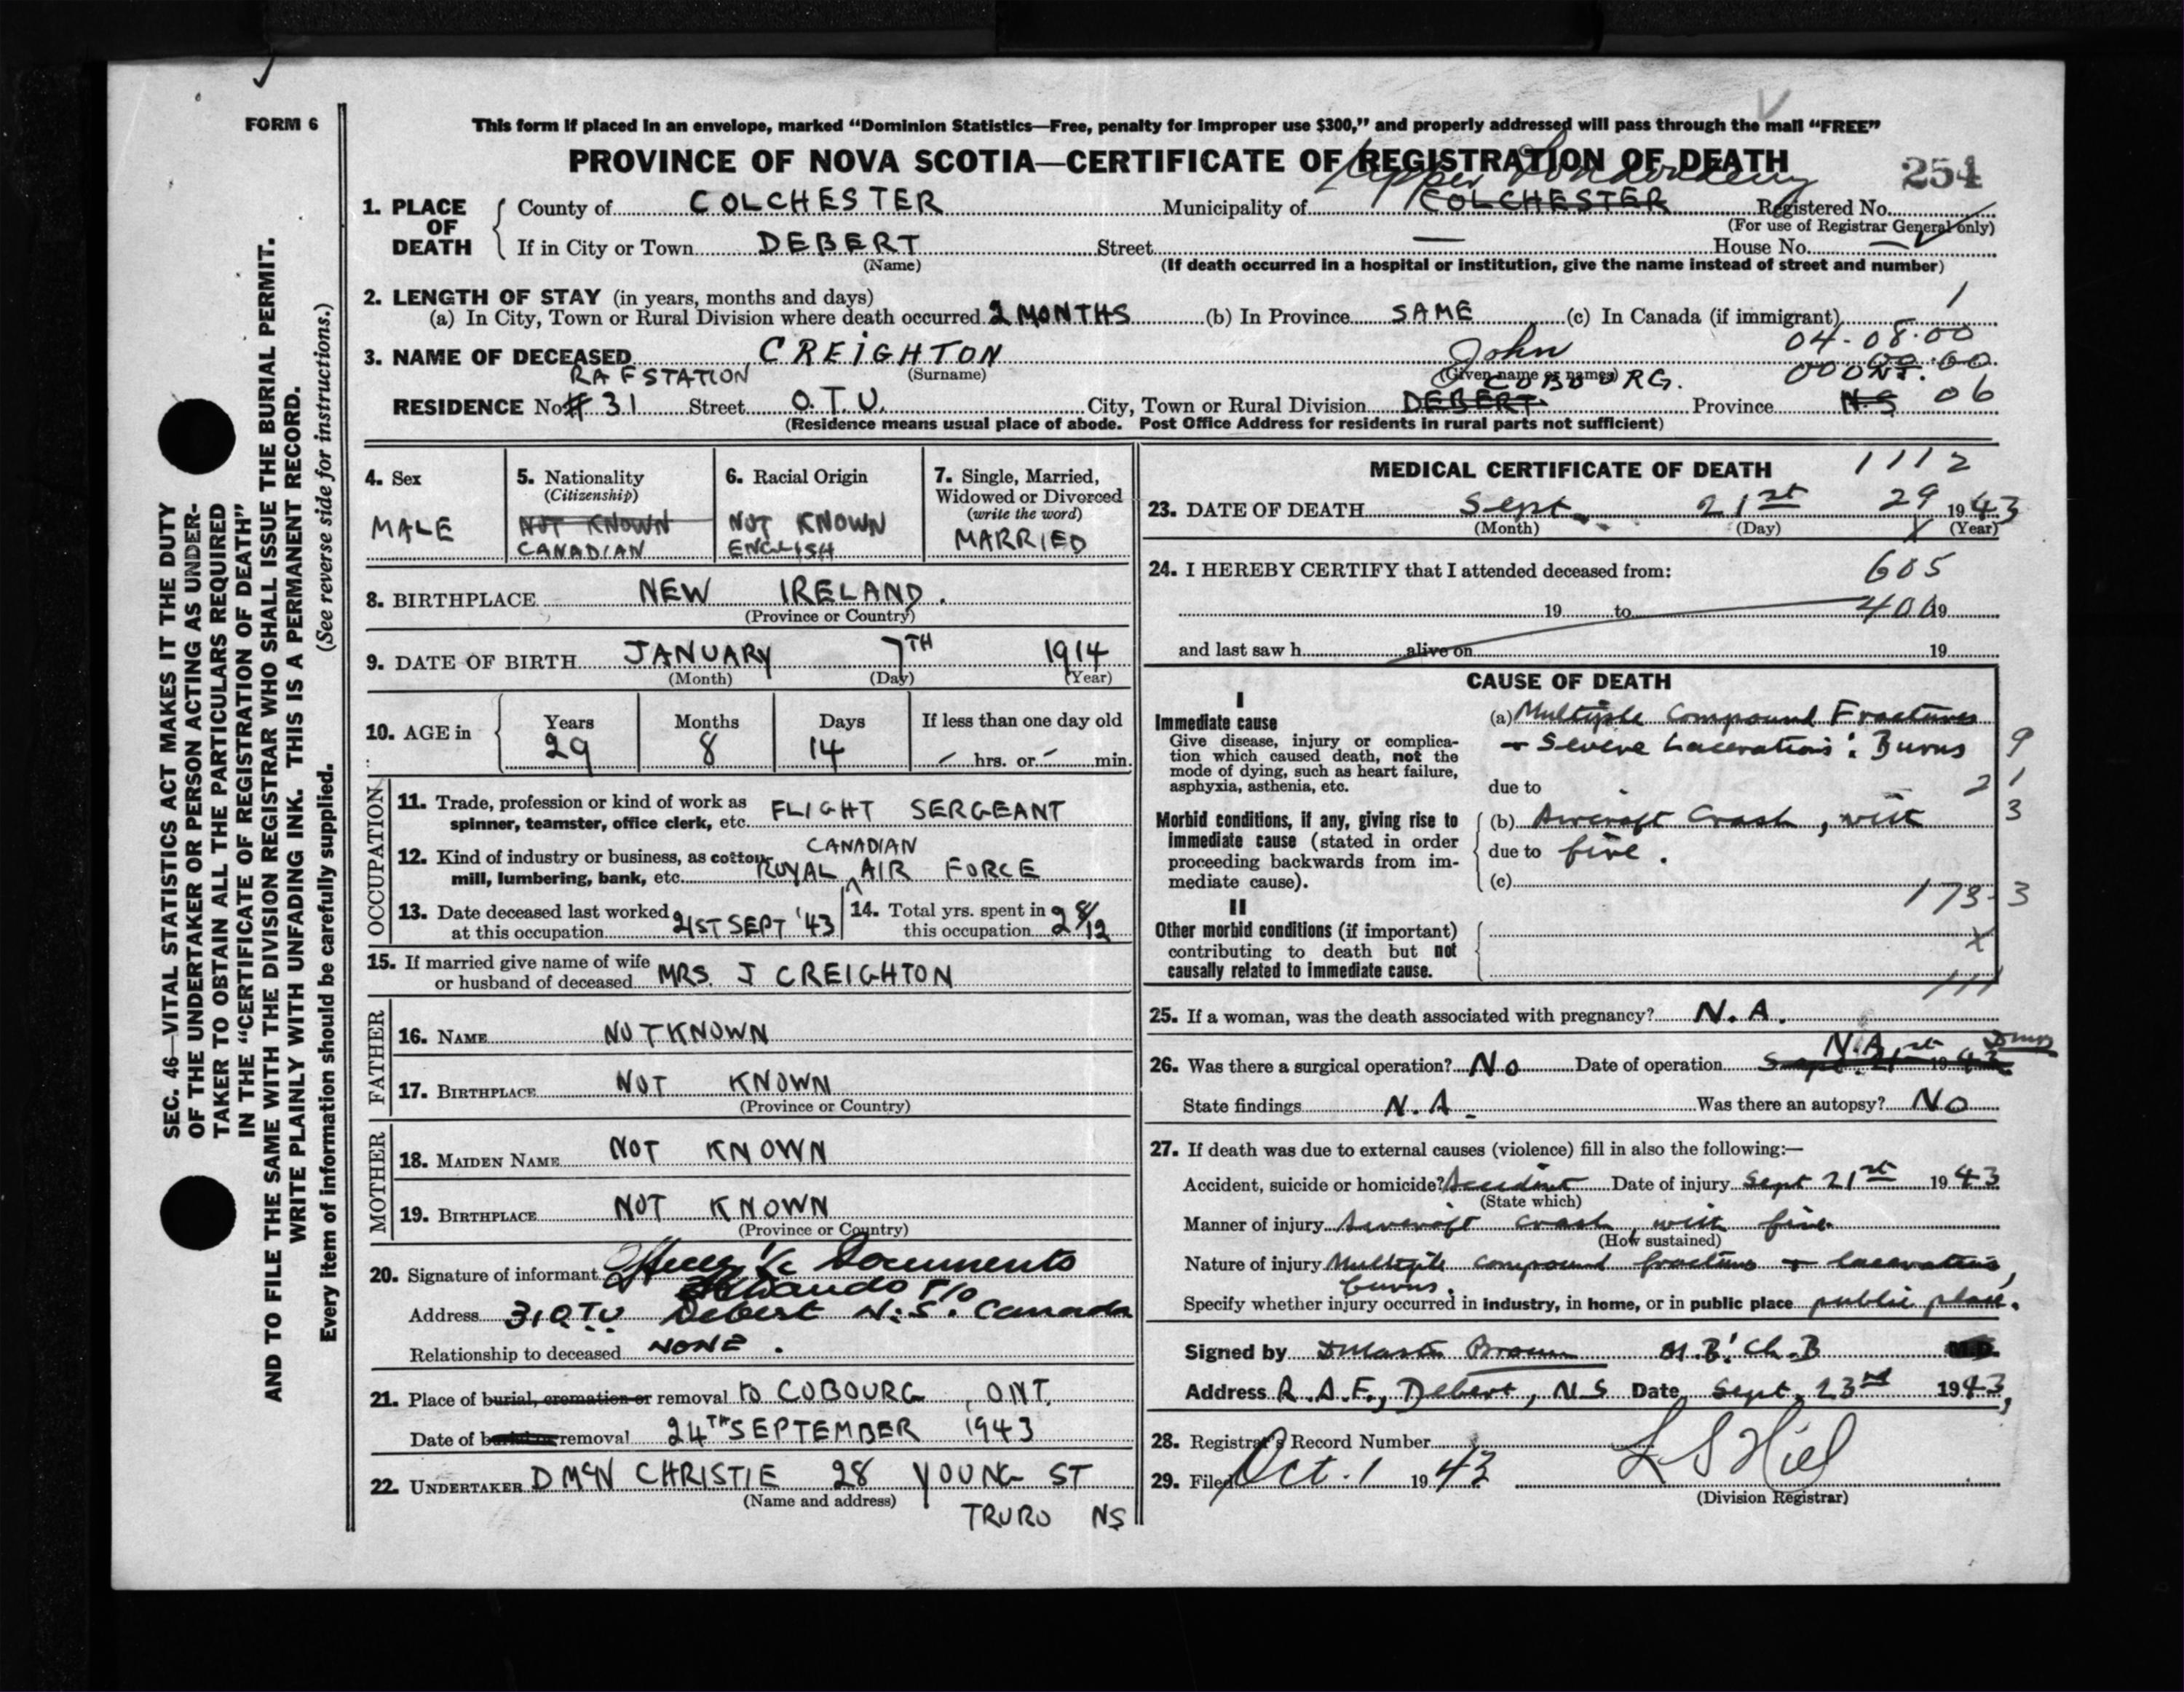 FORM 6
This form if placed in an envelope, marked “Dominion Statistics—Free, penalty for improper use $300,” and properly addressed will pass through the mail “FREE”
PROVINCE OF NOVA SCOTIA—CERTIFICATE OF REGISTRATION OF DEATH
254
Upper Londonderry
1. PLACE OF DEATH County of COLCHESTER Municipality of COLCHESTER Registered No.
(For use of Registrar General only)
If in City or Town DEBERT Street — House No. —
(Name) (If death occurred in a hospital or institution, give the name instead of street and number)
2. LENGTH OF STAY (in years, months and days) 1
(a) In City, Town or Rural Division where death occurred 2 MONTHS (b) In Province SAME (c) In Canada (if immigrant)
04-08-00
3. NAME OF DECEASED CREIGHTON John
(Surname) (Given name or names)
RAF STATION COBOURG. ONT.
RESIDENCE No # 31 Street O.T.U. City, Town or Rural Division DEBERT Province N.S 06
(Residence means usual place of abode. Post Office Address for residents in rural parts not sufficient)
4. Sex
MALE
5. Nationality
(Citizenship)
NOT KNOWN
CANADIAN
6. Racial Origin
NOT KNOWN
ENGLISH
7. Single, Married,
Widowed or Divorced
(write the word)
MARRIED
8. BIRTHPLACE NEW IRELAND.
(Province or Country)
9. DATE OF BIRTH JANUARY 7TH 1914
(Month) (Day) (Year)
10. AGE in Years Months Days If less than one day old
29 8 14 – hrs. or – min.
OCCUPATION
11. Trade, profession or kind of work as
spinner, teamster, office clerk, etc. FLIGHT SERGEANT
12. Kind of industry or business, as cotton CANADIAN
mill, lumbering, bank, etc. ROYAL AIR FORCE
13. Date deceased last worked
at this occupation 21ST SEPT '43
14. Total yrs. spent in
this occupation 2 8/12
15. If married give name of wife
or husband of deceased MRS. J CREIGHTON
FATHER
16. NAME NOT KNOWN
17. BIRTHPLACE NOT KNOWN
(Province or Country)
MOTHER
18. MAIDEN NAME NOT KNOWN
19. BIRTHPLACE NOT KNOWN
(Province or Country)
20. Signature of informant Officer i/c Documents
F/O
Address 31 OTU Debert N.S. Canada
Relationship to deceased NONE.
21. Place of burial, cremation or removal to COBOURG, ONT.
Date of burial or removal 24TH SEPTEMBER 1943
22. UNDERTAKER D McN CHRISTIE 28 YOUNG ST
(Name and address) TRURO NS
MEDICAL CERTIFICATE OF DEATH 1112
23. DATE OF DEATH Sept. 21st 29 1943
(Month) (Day) X (Year)
24. I HEREBY CERTIFY that I attended deceased from: 605
19 to 400 19
and last saw h alive on 19
CAUSE OF DEATH
I
Immediate cause
Give disease, injury or complication which caused death, not the mode of dying, such as heart failure, asphyxia, asthenia, etc.
(a) Multiple Compound Fractures
+ Severe Lacerations: Burns 9
due to 21
Morbid conditions, if any, giving rise to immediate cause (stated in order proceeding backwards from immediate cause).
(b) Aircraft Crash, with 3
due to fire.
(c)
173-3
II
Other morbid conditions (if important) contributing to death but not causally related to immediate cause.
X
111
25. If a woman, was the death associated with pregnancy? N.A.
26. Was there a surgical operation? No Date of operation Sept. 21st 1943 N.A.
State findings N.A. Was there an autopsy? No
27. If death was due to external causes (violence) fill in also the following:—
Accident, suicide or homicide? Accident Date of injury Sept 21st 1943
(State which)
Manner of injury Aircraft crash, with fire.
(How sustained)
Nature of injury Multiple compound fractures + lacerations,
burns.
Specify whether injury occurred in industry, in home, or in public place public place.
Signed by Brown M.B. Ch.B M.D.
Address R.A.F., Debert, N.S Date Sept. 23rd 1943,
28. Registrar's Record Number
29. Filed Oct. 1 1943 L S Hiel
(Division Registrar)
SEC. 46—VITAL STATISTICS ACT MAKES IT THE DUTY
OF THE UNDERTAKER OR PERSON ACTING AS UNDER-
TAKER TO OBTAIN ALL THE PARTICULARS REQUIRED
IN THE “CERTIFICATE OF REGISTRATION OF DEATH”
AND TO FILE THE SAME WITH THE DIVISION REGISTRAR WHO SHALL ISSUE THE BURIAL PERMIT.
WRITE PLAINLY WITH UNFADING INK. THIS IS A PERMANENT RECORD.
Every item of information should be carefully supplied. (See reverse side for instructions.)